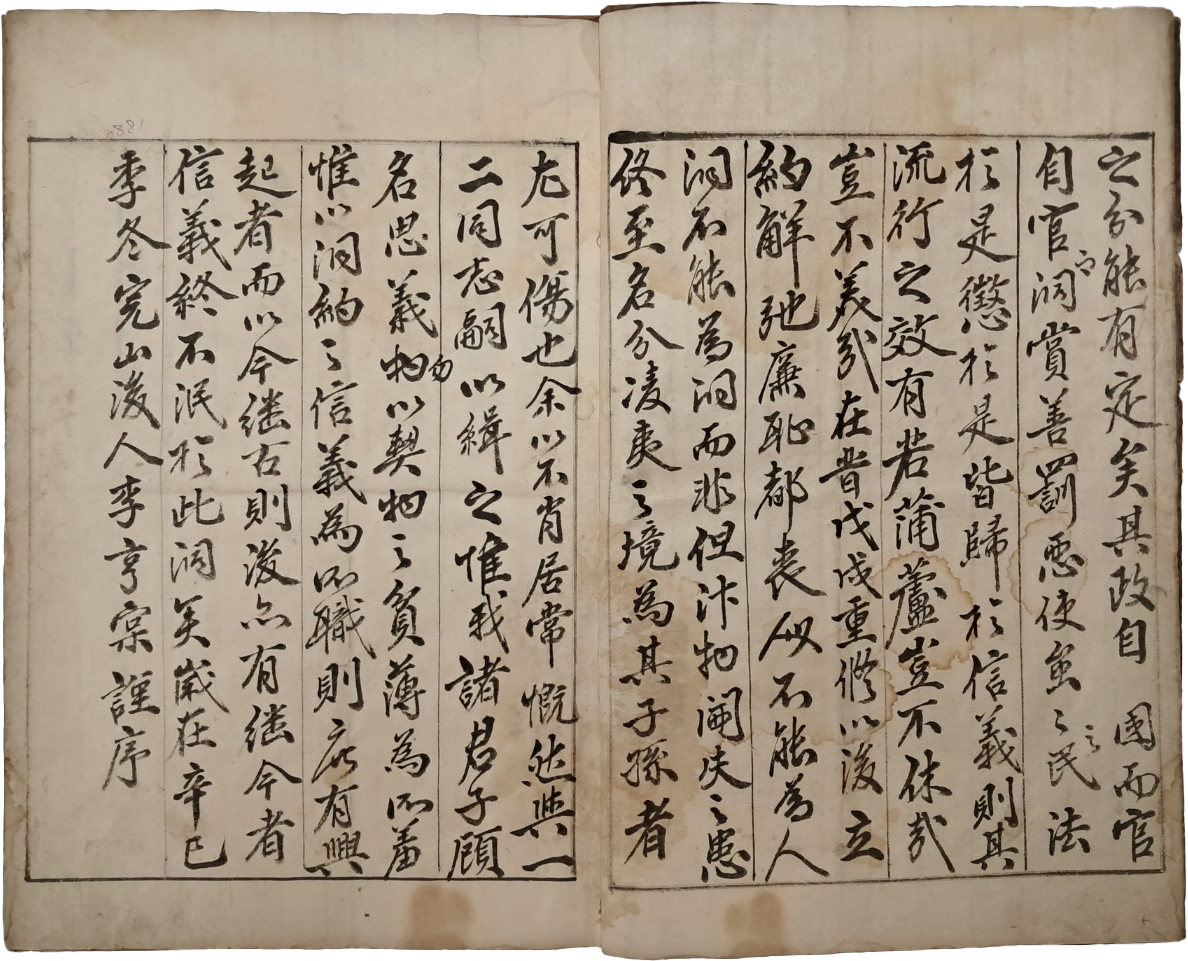 之分能有定矣其政自 國而官
自官而洞賞善罰惡使蚩〻之民法
於是懲於是皆歸於信義則其
流行之效有若蒲蘆豈不休哉
豈不美哉在昔戊戌重修以後立
約解弛廉恥都喪不能為人
洞不能為洞而非但汴物閙失之患
終至名分凌夷之境為其子孫者
尤可傷也余以不肖居常慨然與一
二同志嗣以緝之惟我諸君子顧
名思義勿以契物之貧薄為所羞
惟以洞約之信義為所職則庶有興
起者而以今継古則後亦有継今者
信義終不泯於此洞矣歲在辛巳
季冬完山後人李亨寀謹序